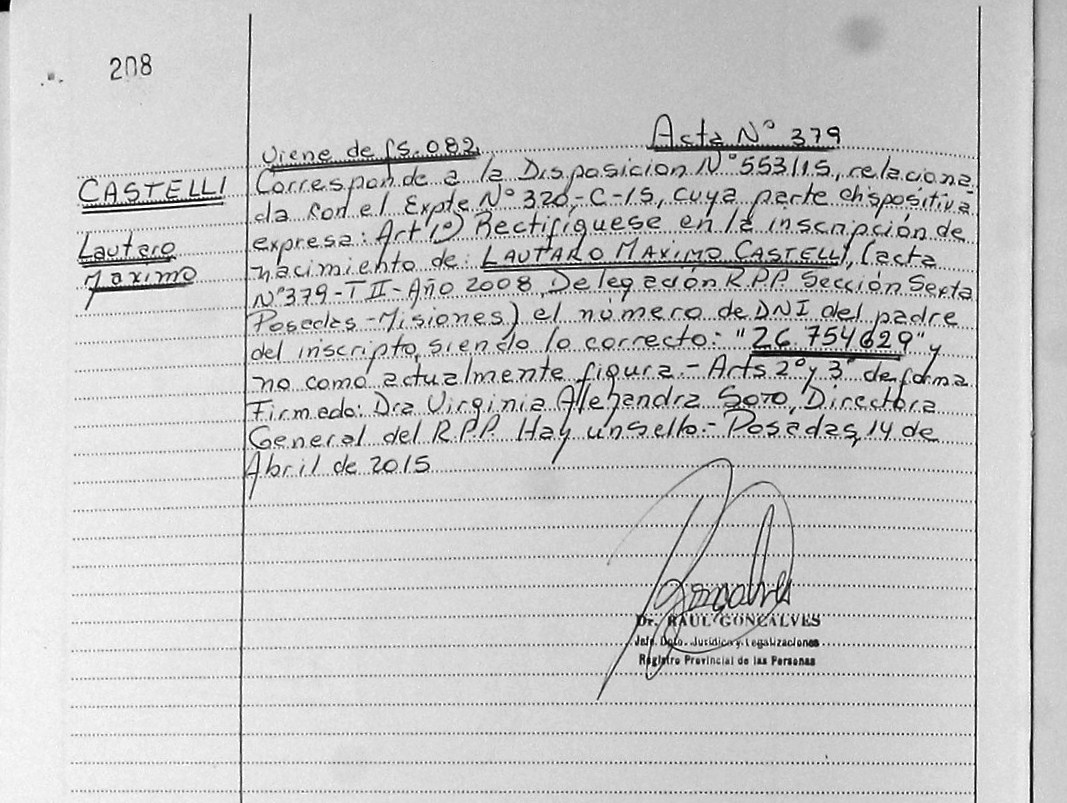 208
Viene de fs. 082 Acta N° 379
CASTELLI
Lautaro
Maximo
Corresponde a la Disposicion N° 553/15, relaciona-
da con el Expte N° 320-C-15, cuya parte dispositiva
expresa: Art 1°) Rectifiquese en la inscripción de
nacimiento de: LAUTARO MAXIMO CASTELLI, (acta
N°379-T II-Año 2008, Delegación R.P.P. Sección Sexta
Posadas-Misiones) el número de DNI del padre
del inscripto, siendo lo correcto: "26.754629" y
no como actualmente figura.- Arts 2° y 3° de forma
Firmado: Dra Virginia Alejandra Soto, Directora
General del R.P.P. Hay un sello.- Posadas, 14 de
Abril de 2015
Dr. RAUL GONCALVES
Jefe Dpto. Jurídico y Legalizaciones
Registro Provincial de las Personas